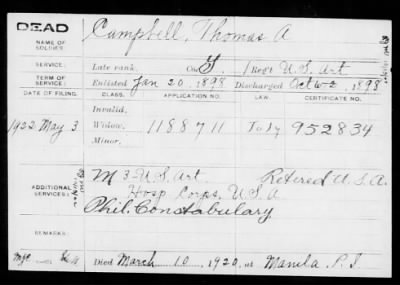 DEAD
NAME OF SOLDIER: Campbell, Thomas A
SERVICE: Late rank, Co. Y, 1 Reg't U.S. Art
TERM OF SERVICE: Enlisted Jan 20, 1898 Discharged Oct 1898
DATE OF FILING. CLASS. APPLICATION NO. LAW. CERTIFICATE NO.
Invalid,
1922 May 3 Widow, 1188711 July 952834
Minor,
ADDITIONAL SERVICES: M 3 U.S Art Retired U.S.A.
Hosp Corps. U.S.A
Phil. Constabulary
REMARKS:
Died March 10, 1920, at Manila P.I.